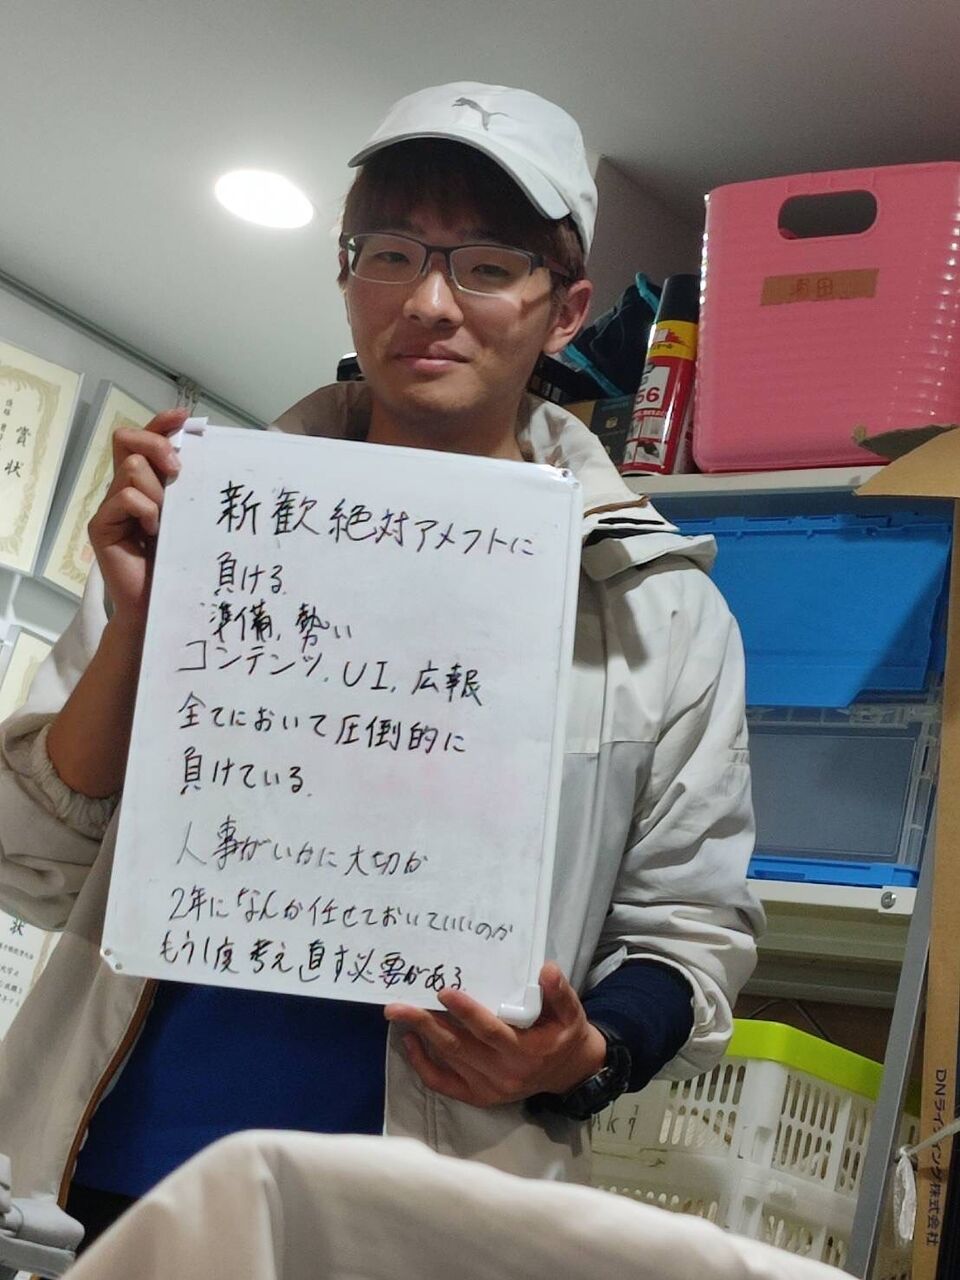 新歓絶対アメフトに
負ける.
準備,勢い
コンテンツ,UI,広報
全てにおいて圧倒的に
負けている.
人事がいかに大切か
2年になんか任せておいていいのか
もう1度考え直す必要がある.
賞状
状
56
DNライティング株式会社